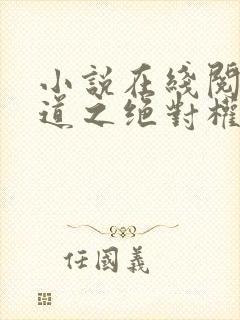 小說在綫閱
道之绝對權
任國義